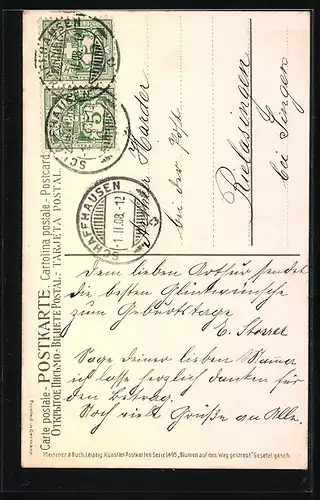 Carte postale - POSTKARTE - Cartolina postale - Postcard.
ОТКРЫТОЕ ПИСЬМО - BILHETE POSTAL - TARJETA POSTAL.
Printed in Germany.
SCHAFFHAUSEN
5
5
SCHAFFHAUSEN
-1.II.08.-12
Harder
bei der Post
Rielasingen
bei Singen
Dem lieben Arthur sendet
die besten Glückwünsche
zum Geburtstage
E. Storrer
Sage deiner lieben Mama
ich lasse herzlich danken für
den Betrag.
Noch viele Grüße an Alle.
Meissner & Buch, Leipzig Künstler-Postkarten Serie 1495 "Blumen auf den Weg gestreut" Gesetzl. gesch.